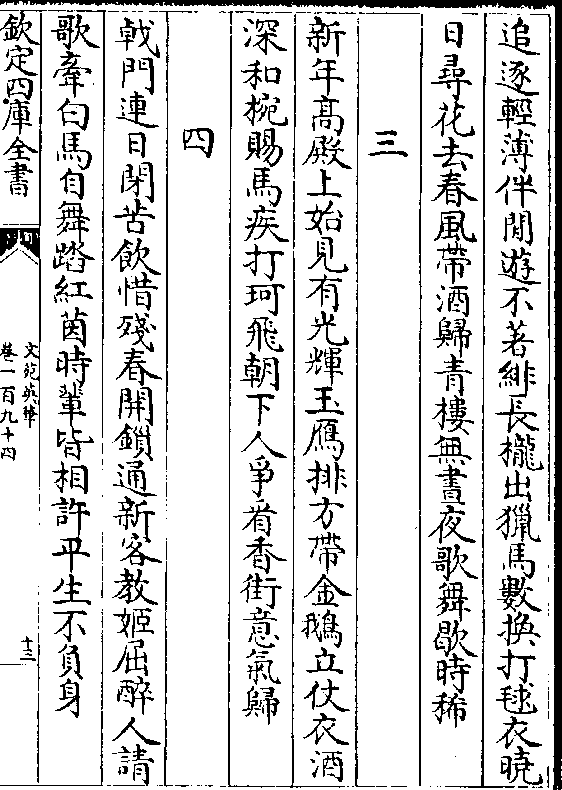 追逐輕薄伴閒遊不著緋長攏出獵馬數換打毬衣曉
日尋花去春風帶酒歸青樓無晝夜歌舞歇時稀
三
新年高殿上始見有光輝玉鴈排方帶金鵝立仗衣酒
深和椀賜馬疾打珂飛朝下人爭看香街意氣歸
四
戟門連日閉苦飲惜殘春開鎖通新客教姬屈醉人請
歌牽白馬自舞踏紅茵時輩皆相許平生不負身
欽定四庫全書
文苑英華
卷一百九十四
十三